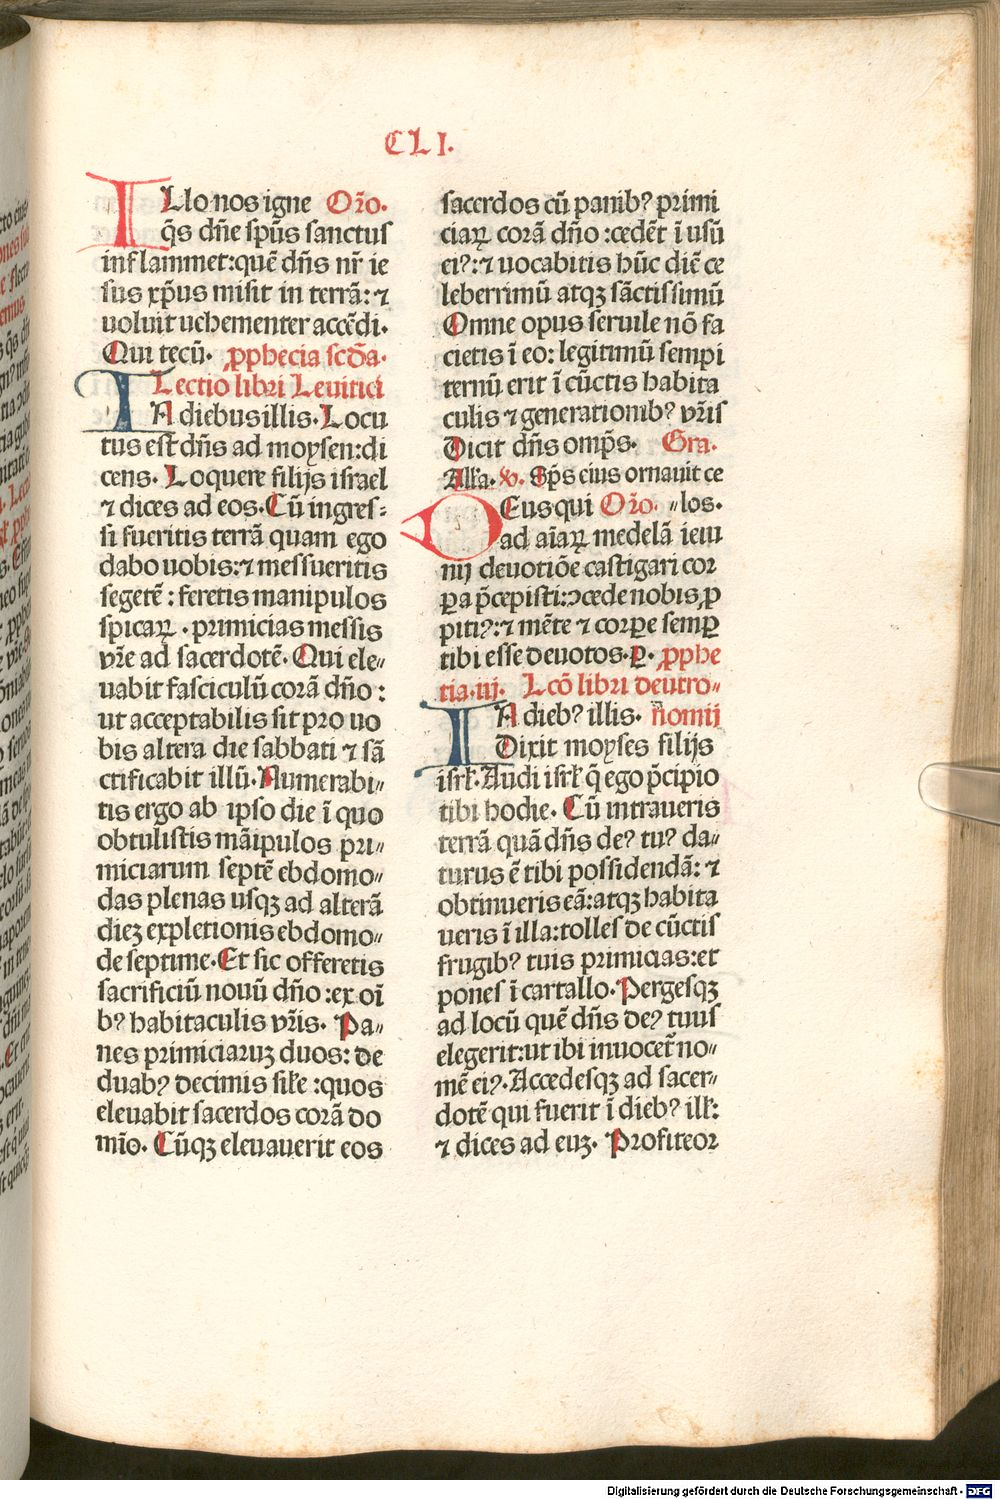 CLI.
ILlo nos igne Orõ.
q̃s dñe spũs sanctus
inflammet:quē dñs nr̃ ie
sus xp̃us misit in terrã: ⁊
uoluit uehementer accẽdi.
Qui tecũ. ꝓphecia scďa.
Lectio libri Leuitici
IN diebus illis. Locu
tus est dñs ad moysen:di
cens. Loquere filijs israel
⁊ dices ad eos. Cũ ingres⸗
si fueritis terrã quam ego
dabo uobis:⁊ messueritis
segetẽ : feretis manipulos
spicaꝝ . primicias messis
vr̃e ad sacerdotẽ. Qui ele⸗
uabit fasciculũ corã dño :
ut acceptabilis sit pro uo
bis altera die sabbati ⁊ sã
ctificabit illũ. Numerabi⸗
tis ergo ab ipso die ĩ quo
obtulistis mãipulos pri⸗
miciarum septẽ ebdomo⸗
das plenas usqꝫ ad alterã
dieꝫ expletionis ebdomo⸗
de septime. Et sic offeretis
sacrificiũ nouũ dño : ex oĩ
bꝰ habitaculis vr̃is. Pa⸗
nes primiciaruꝫ duos: de
duabꝰ decimis sil̃e :quos
eleuabit sacerdos corã do
mĩo. Cũqꝫ eleuauerit eos
sacerdos cũ panibꝰ primi
ciaꝝ corã dño :cedẽt ĩ usũ
eiꝰ:⁊ uocabitis hũc diẽ ce
leberrimũ atqꝫ sãctissimũ
Omne opus seruile nõ fa
cietis ĩ eo: legitimũ sempi
ternũ erit ĩ cũctis habita
culis ⁊ generationibꝰ vr̃is
Dicit dñs omp̃s. Gra.
Allã. ꝟ. Sp̃s eius ornauit ce
DEus qui Orõ. ⸗los.
ad aĩaꝝ medelã ieiu
nij deuotiõe castigari cor
ꝑa p̃cepisti:ↄcede nobis ꝓ
pitiꝰ:⁊ mẽte ⁊ corꝑe semꝑ
tibi esse deuotos.ꝑ. ꝓphe
tia.iij. Lcõ libri deutro⸗
IN diebꝰ illis. nomij
Dixit moyses filijs
isrł. Audi isrł q̃ ego p̃cipio
tibi hodie. Cũ intraueris
terrã quã dñs deꝰ tuꝰ da⸗
turus ẽ tibi possidendã: ⁊
obtinueris eã:atqꝫ habita
ueris ĩ illa:tolles de cũctis
frugibꝰ tuis primicias:et
pones ĩ cartallo. Pergesqꝫ
ad locũ quẽ dñs deꝰ tuus
elegerit:ut ibi inuocet̃ no⸗
mẽ eiꝰ. Accedesqꝫ ad sacer⸗
dotẽ qui fuerit ĩ diebꝰ ill̃:
⁊ dices ad euꝫ. Profiteor
Digitalisierung gefördert durch die Deutsche Forschungsgemeinschaft - DFG